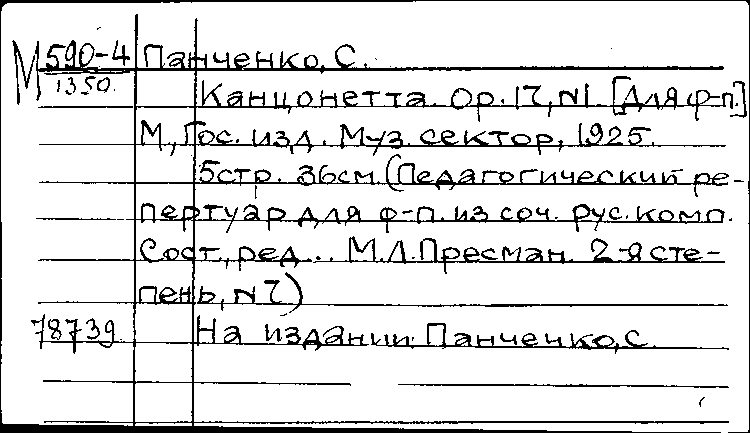 М 590-4 Панченко, С.
1350.
Канцонетта. Ор. 17, №1. [Для ф-п.]
М., Гос. изд. Муз. сектор, 1925.
5 стр. 36см. (Педагогический ре-
пертуар для ф-п. из соч. рус. комп.
Сост., ред... М.Л. Пресман. 2-я сте-
пень, № 7)
78739 На издании: Панченко, С.